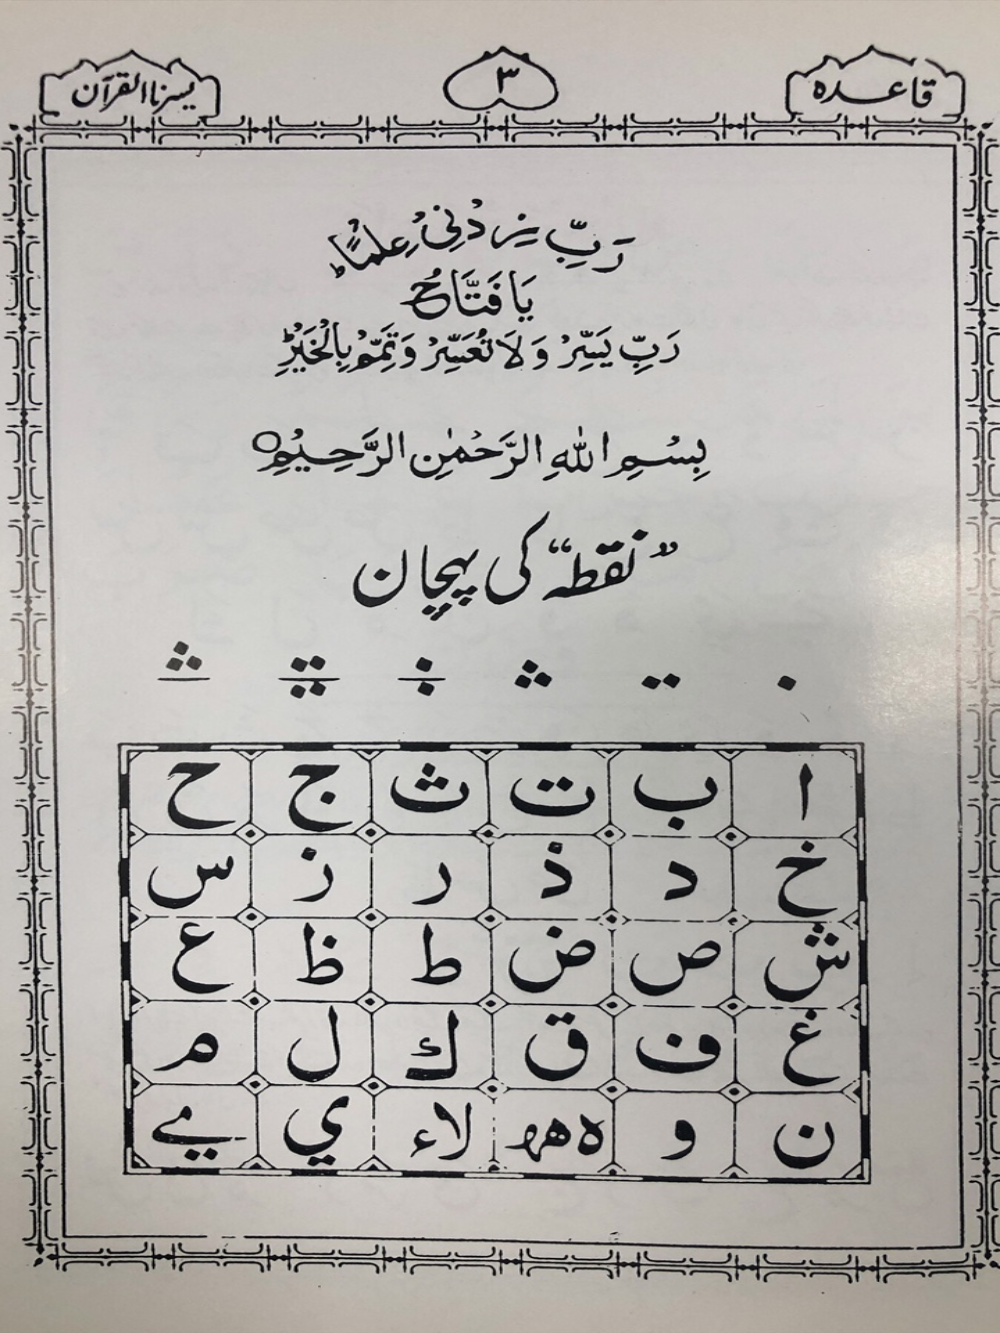 قاعدہ ۳ یسرنا القرآن
رَبِّ زِدْنِیْ عِلْمًا ؕ
یَا فَتَّاحُ
رَبِّ یَسِّرْ وَلَا تُعَسِّرْ وَتَمِّمْ بِالْخَیْرِ ؕ
بِسْمِ اللّٰهِ الرَّحْمٰنِ الرَّحِیْمِ ○
”نقطہ“ کی پہچان
ا ب ت ث ج ح
خ د ذ ر ز س
ش ص ض ط ظ ع
غ ف ق ك ل م
ن و ہ ھ ﮩ لا ء ي ے